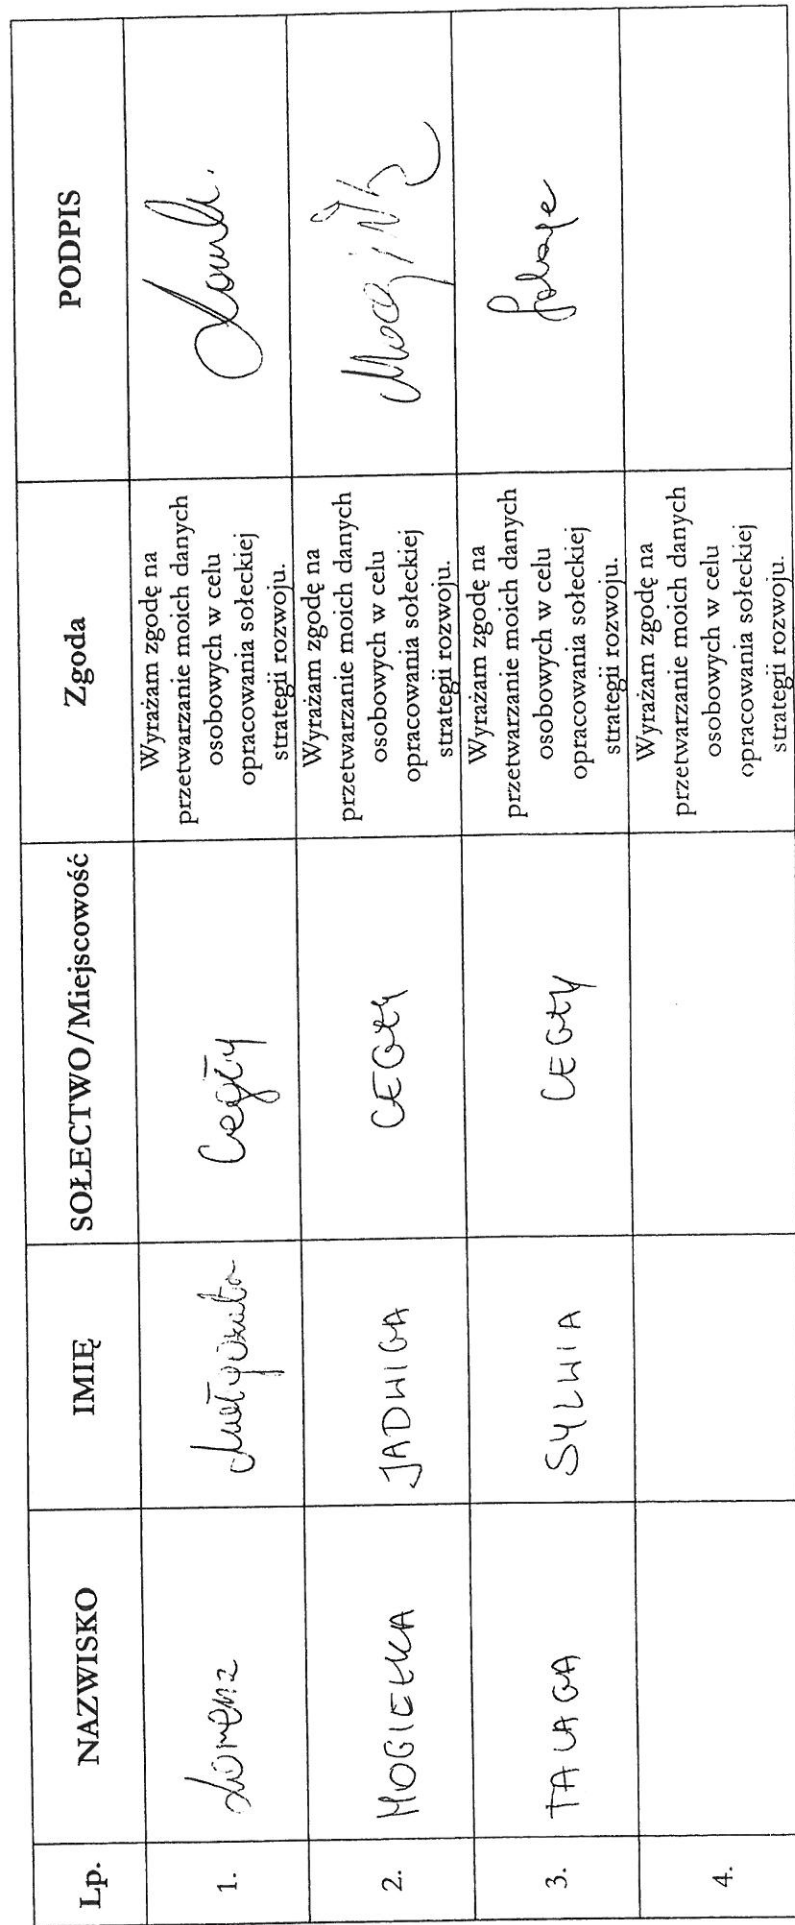 Lp. NAZWISKO IMIĘ SOŁECTWO/Miejscowość Zgoda PODPIS
1. Lorenz Małgorzata Cegły
Wyrażam zgodę na
przetwarzanie moich danych
osobowych w celu
opracowania sołeckiej
strategii rozwoju.
2. MOGIEŁKA JADWIGA CEGŁY
Wyrażam zgodę na
przetwarzanie moich danych
osobowych w celu
opracowania sołeckiej
strategii rozwoju.
3. TALAGA SYLWIA CEGŁY
Wyrażam zgodę na
przetwarzanie moich danych
osobowych w celu
opracowania sołeckiej
strategii rozwoju.
4.
Wyrażam zgodę na
przetwarzanie moich danych
osobowych w celu
opracowania sołeckiej
strategii rozwoju.